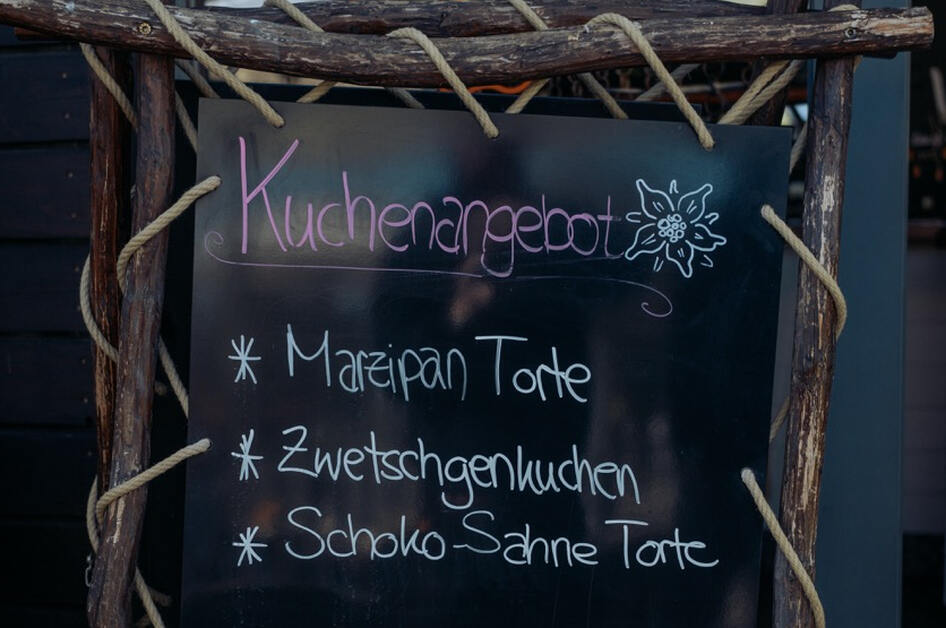 Kuchenangebot
* Marzipan Torte
* Zwetschgenkuchen
* Schoko-Sahne Torte